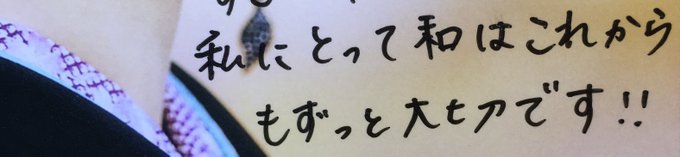 私にとって和はこれから
もずっと大切です!!